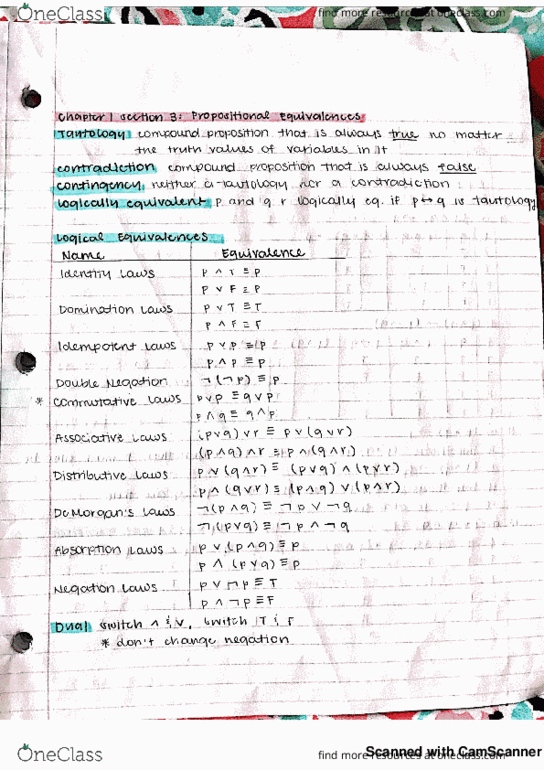 OneClass
find more resources at oneclass.com
Chapter 1 section 3: Propositional Equivalences
Tautology compound proposition that is always true no matter
the truth values of variables in it
contradiction compound proposition that is always false
contingency neither a tautology nor a contradiction
logically equivalent p and q r logically eq. if p↔q is tautology
Logical Equivalences
Name Equivalence
Identity Laws p ∧ T ≡ p
p ∨ F ≡ p
Domination Laws p ∨ T ≡ T
p ∧ F ≡ F
Idempotent Laws p ∨ p ≡ p
p ∧ p ≡ p
Double Negation ¬(¬p) ≡ p
* Commutative Laws p∨p ≡ q∨p
p∧q ≡ q∧p
Associative Laws (p∨q)∨r ≡ p∨(q∨r)
(p∧q)∧r ≡ p∧(q∧r)
Distributive Laws p∨(q∧r) ≡ (p∨q)∧(p∨r)
p∧(q∨r) ≡ (p∧q)∨(p∧r)
DeMorgan's Laws ¬(p∧q) ≡ ¬p ∨ ¬q
¬(p∨q) ≡ ¬p ∧ ¬q
Absorption Laws p∨(p∧q) ≡ p
p∧(p∨q) ≡ p
Negation Laws p∨¬p ≡ T
p∧¬p ≡ F
Dual switch ∧ & ∨, switch T & F
* don't change negation
OneClass
find more resources at oneclass.com
Scanned with CamScanner